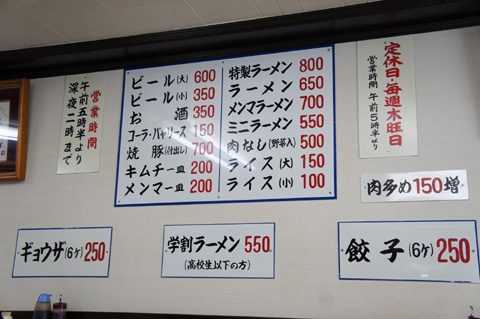 営業時間
・午前五時半より
深夜二時まで
ビール(大) 600
ビール(小) 350
お酒 350
コーラ・バャリース 150
焼豚(付出し) 700
キムチ一皿 200
メンマ一皿 200
特製ラーメン 800
ラーメン 650
メンマラーメン 700
ミニラーメン 550
肉なし(野菜入) 500
ライス(大) 150
ライス(小) 100
定休日・毎週木曜日
営業時間 午前5時半より
肉多め150増
ギョウザ(6ケ)250
学割ラーメン 550
(高校生以下の方)
餃子(6ケ)250